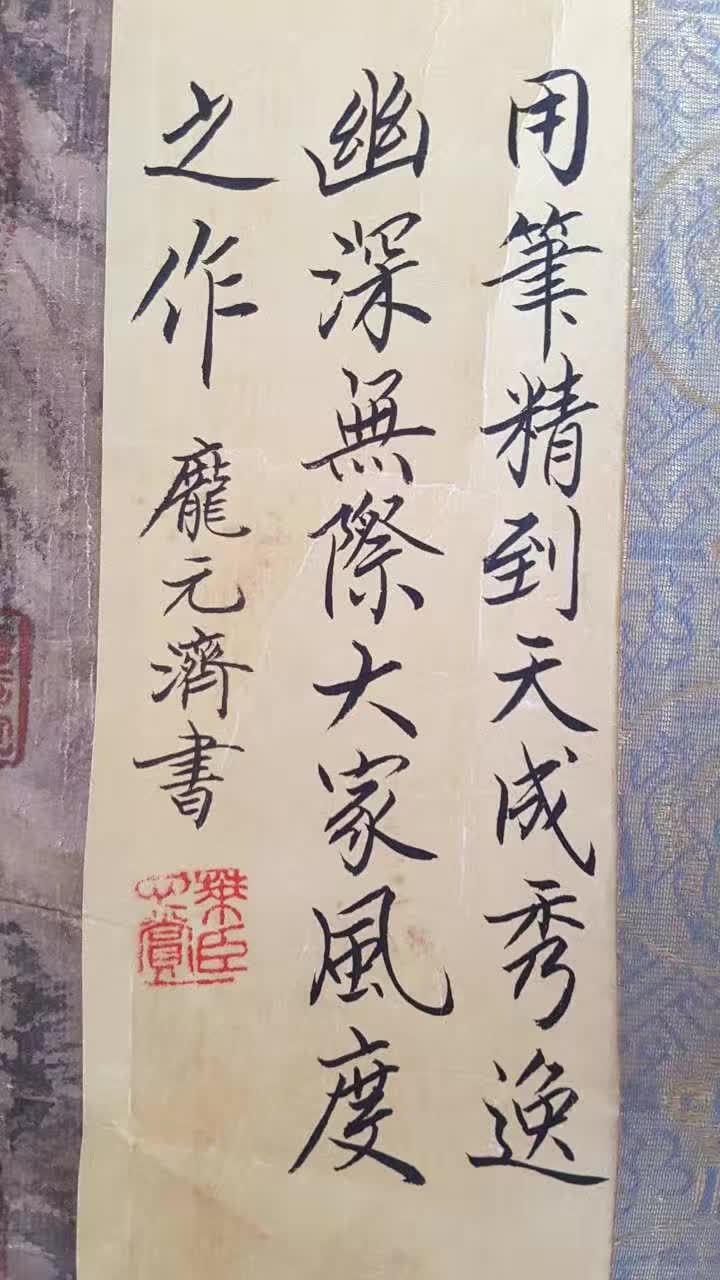 用筆精到天成秀逸
幽深無際大家風度
之作 龐元濟書
萊臣心賞